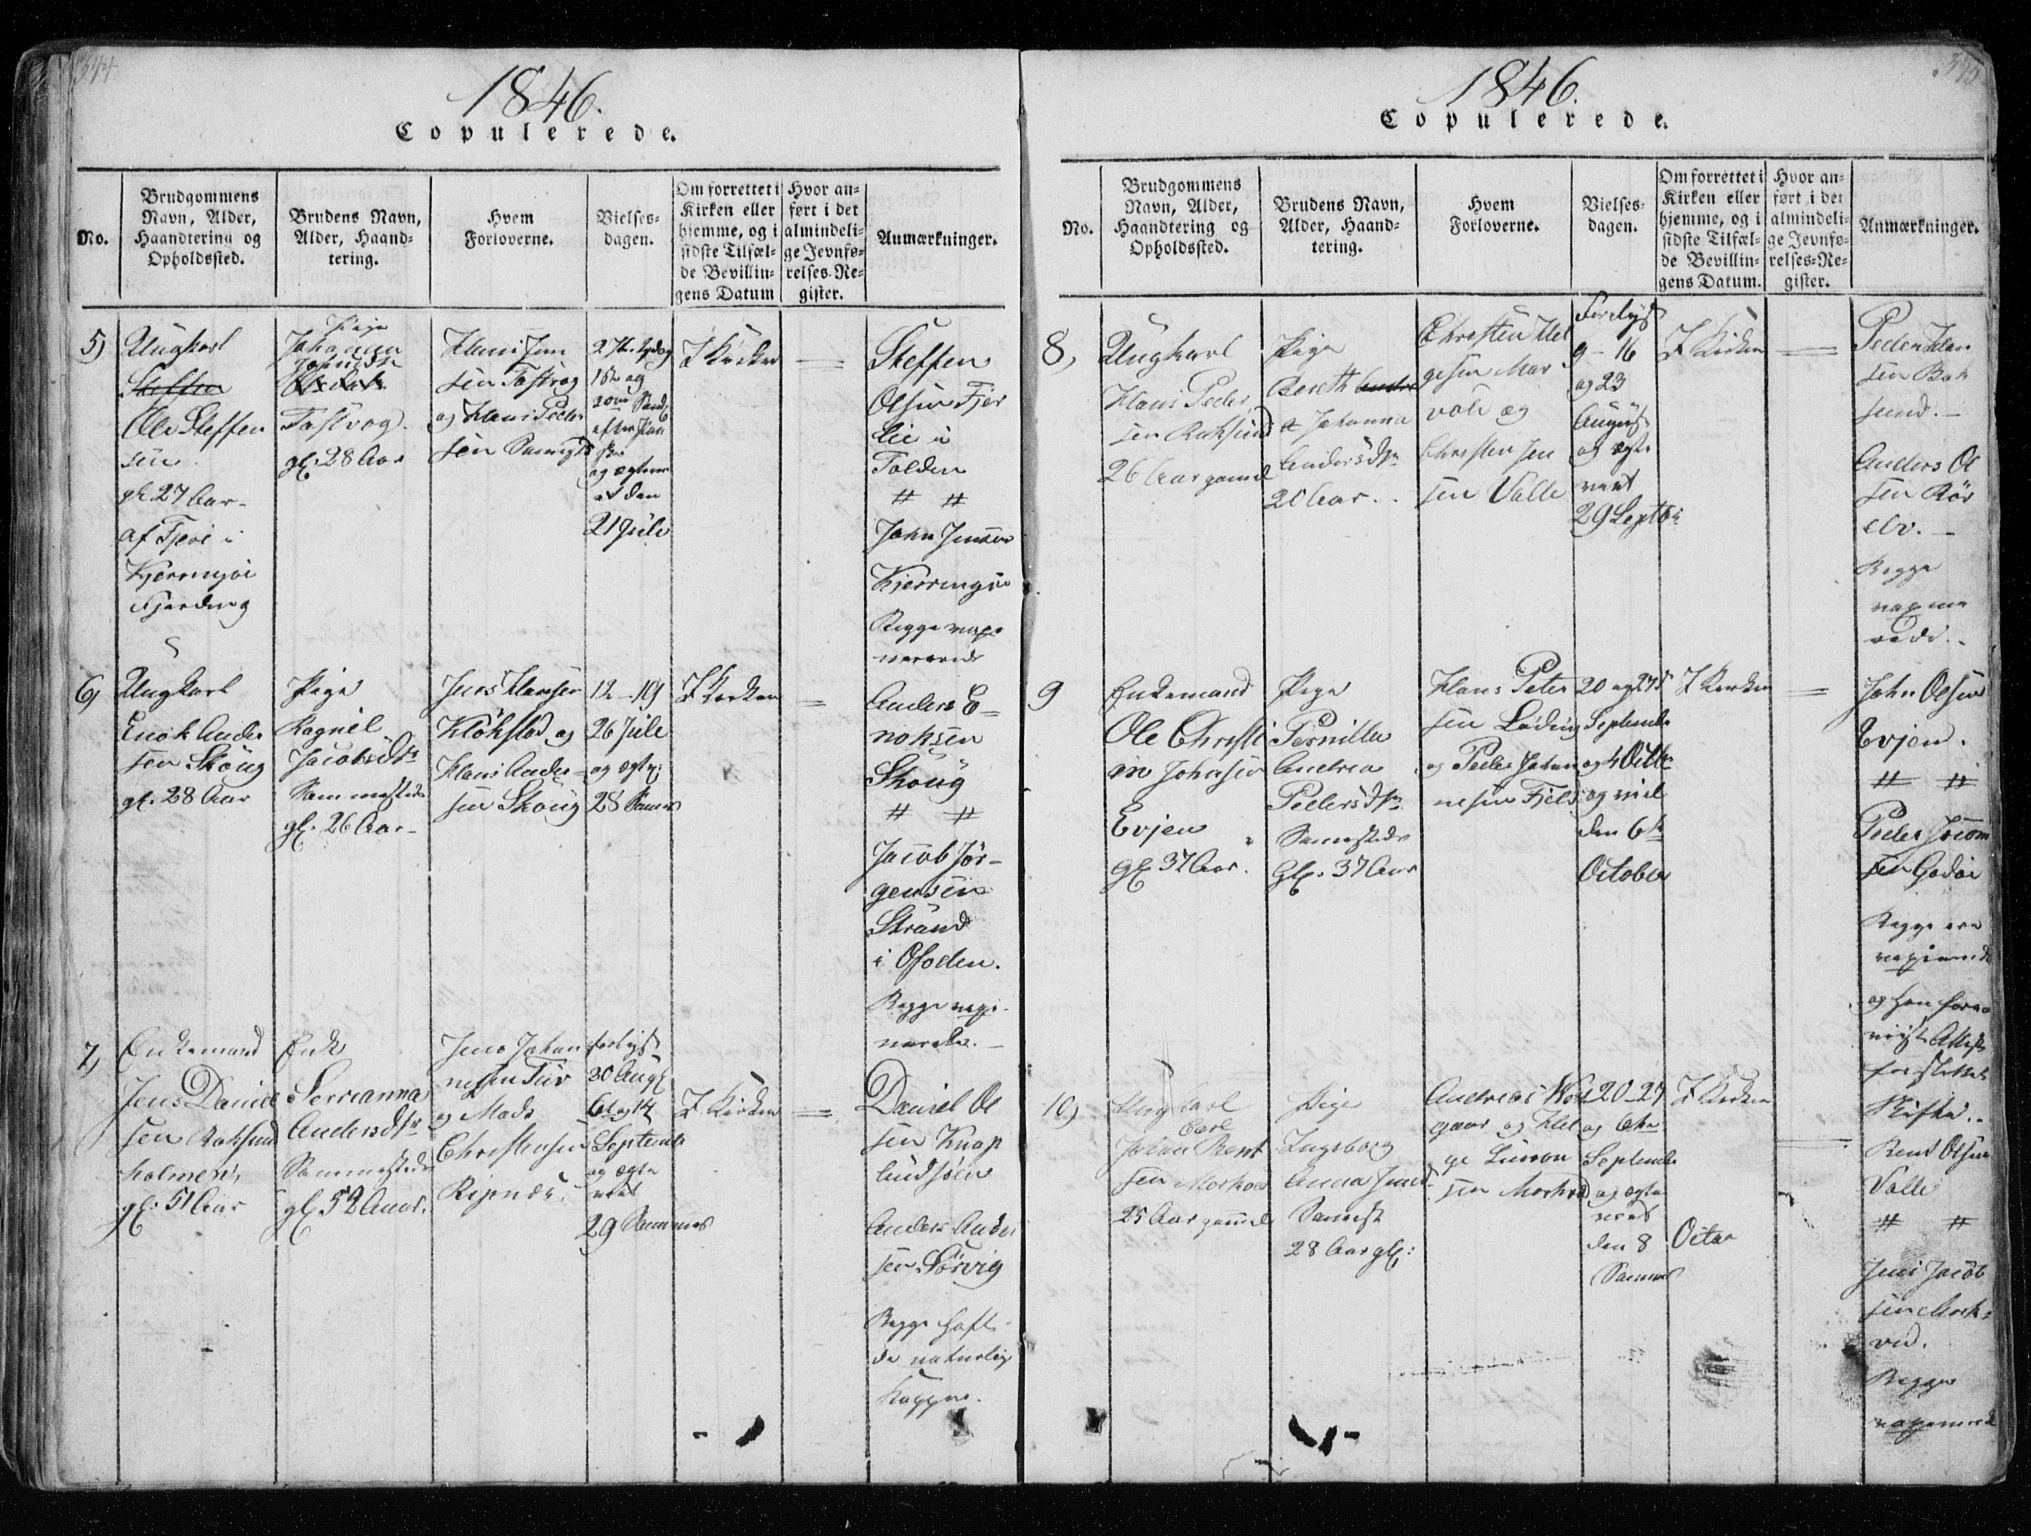 344
1846.
Copulerede.
No.
Brudgommens
Navn, Alder,
Haandtering og
Opholdssted.
Brudens Navn,
Alder, Haand-
tering.
Hvem
Forloverne.
Vielses-
dagen.
Om forrettet i
Kirken eller
hjemme, og i
sidste Tilfæl-
de Bevillin-
gens Datum
Hvor an-
ført i det
almindeli-
ge Jevnfø-
relses-Re-
gister.
Anmærkninger.
5)
Ungkarl
Steffen
Ole Steffen
sen
gl. 27 Aar
af Fjære i
Kjerringøe
Fjerding
Pige
Johanna
Tastvog
gl. 28 Aar
Hans Jen
sen Tastvog
og Hans Peder
sen
og
og ægtevi
et den
21 Juli
I Kirken
Steffen
Olsen Fjer
lie i
Folden
" "
John Jensen
Kjerringøe
Begge vaxi
nerede
6)
Ungkarl
Enok Ander
sen Skoug
gl. 28 Aar
Pige
Ragnel
Jacobsdtr
Sammesteds
gl. 26 Aar
Jens Hansen
Kløkstad og
Hans Ander-
sen Skoug
12-19
26 Juli
og ægtv.
28 Sammes
I Kirken
Anders E-
noksen
Skoug
" "
Jacob Jør-
gensen
Strand
i Ofoden.
Begge vaxi-
nerede.
7)
Enkemand
Jens Daniel
sen
holmen,
gl. 51 Aar
Enke
Serianna
Andersdtr
Sammesteds
gl. 52 Aar.
Jens Johan
nesen Tuv
og Mads
Christensen
Ripnæs.
forlyst
30 Aug
6 og 14
Septembr
og ægte
viet
29 Sammes
I Kirken
Daniel Ol
sen Knap
lundsøen
Anders Ander
sen Sørvig
Begge haft
de naturlig
Kopper.
1846.
Copulerede.
No.
Brudgommens
Navn, Alder,
Haandtering og
Opholdssted.
Brudens Navn,
Alder, Haand-
tering.
Hvem
Forloverne.
Vielses-
dagen.
Om forrettet i
Kirken eller
hjemme, og i
sidste Tilfæl-
de Bevillin-
gens Datum.
Hvor an-
ført i det
almindeli-
ge Jevnfø-
relses-Re-
gister.
Anmærkninger.
8,
Ungkarl
Hans Peder
sen Baksund
26 Aar gammel
Pige
Bereth
Johanna
Andersdtr
20 Aar.
Christen Hel
gesen Mar
vold og
Christen Jen
sen Valle
Forlyst
9-16
og 23
August
og ægte
viet
29 Septbr
I Kirken
Peder Han
sen Bak
sund.
Anders Ol
sen Rør
elv.
Begge
vaxine
rede.
9
Enkemand
Ole Christi
an Johnsen
Evjen
gl. 37 Aar.
Pige
Pernilla
Andrea
Pedersdtr
Sammesteds
Gl. 37 Aar
Hans Peter
sen Løding
og Peder Johan
nesen Fjeld
20 og 27d
Septembr
og 4 Octbr
og viet
den 6te
October
I Kirken
John Olsen
Evjen.
" "
Peder Joiom
sen Godøe
Begge ere
vaxinered
og han
Attest
for
Skifte.
10)
Ungkarl
Carl
Johan Bent
sen Morkved
25 Aar gammel
Pige
Ingeborg
Anna Jensd.
Sammest
28 Aar gl:
Andreas Wos
gaar og Hel
ge Simon
sen Morkved
20-27
og 6te
Septembr
og ægte
viet
den 8
Sammes
I Kirken
Octbr
Bent Olsen
Valle
" "
Jens Jacob
sen Mork-
ved.
Begge
vaxinered